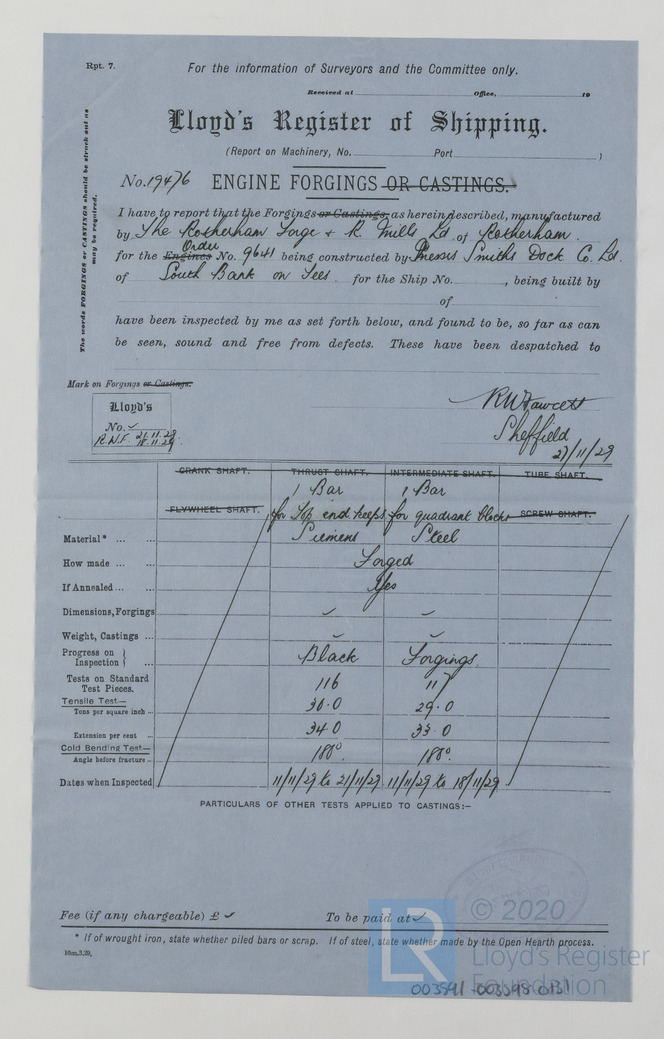 Rpt. 7.
For the information of Surveyors and the Committee only.
Received at Office, 19
Lloyd's Register of Shipping.
(Report on Machinery, No. Port )
No. 19476 ENGINE FORGINGS OR CASTINGS.
The words FORGINGS or CASTINGS should be struck out as may be required.
I have to report that the Forgings or Castings, as herein described, manufactured
by The Rotherham Forge & R. Mills Ld of Rotherham
Order
for the Engines No. 9641 being constructed by Messrs Smiths Dock Co. Ld.
of South Bank on Tees for the Ship No. , being built by
of
have been inspected by me as set forth below, and found to be, so far as can
be seen, sound and free from defects. These have been despatched to
Mark on Forgings or Castings.
Lloyd's
No. ✓
21.11.29
18.11.29
R W Fawcett
Sheffield
27/11/29
CRANK SHAFT. THRUST SHAFT. INTERMEDIATE SHAFT. TUBE SHAFT.
1 Bar 1 Bar
FLYWHEEL SHAFT. for Top end keeps for quadrant blocks SCREW SHAFT.
Material* ... ... Siemens Steel
How made ... ... Forged
If Annealed ... ... Yes
Dimensions, Forgings ✓ ✓
Weight, Castings ... ✓ ✓
Progress on Inspection } ... Black Forgings.
Tests on Standard Test Pieces. 116 117
Tensile Test—
Tons per square inch ... 30.0 29.0
Extension per cent ... 34.0 33.0
Cold Bending Test—
Angle before fracture ... 180° 180°.
Dates when Inspected 11/11/29 to 21/11/29 11/11/29 to 18/11/29
PARTICULARS OF OTHER TESTS APPLIED TO CASTINGS:—
Fee (if any chargeable) £ ✓ To be paid at ✓
* If of wrought iron, state whether piled bars or scrap. If of steel, state whether made by the Open Hearth process.
10m,3,29.
LR
© 2020
Lloyd's Register
Foundation
003591-003598-0131